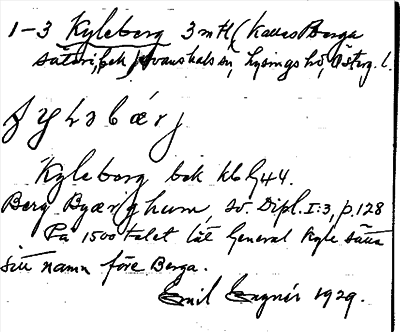 1-3 Kyleberg 3 mtl (kallas Berga
säteri, bek, Svanshals sn, Lysings hd, Österg. l.
Kyleberg bek kb 1644.
Berg Byærghum, sv. Dipl. I:3, p. 128
På 1500 talet lät General Kyle sätta
sitt namn före Berga.
Emil Engnér 1929.